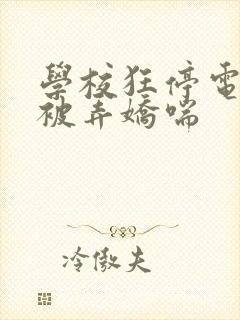 學校狂停電
被弄嬌喘
冷傲夫